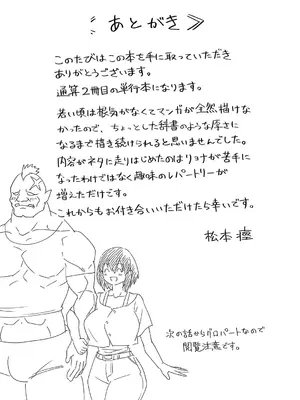 ≪あとがき≫
このたびはこの本を手に取っていただき
ありがとうございます。
通算2冊目の単行本になります。
若い頃は根気がなくてマンガが全然描けな
かったので、ちょっとした辞書のような厚さに
なるまで描き続けられると思いませんでした。
内容がネタに走りはじめたのはリョナが苦手に
なったわけではなく趣味のレパートリーが
増えただけです。
これからもお付き合いいただけたら幸いです。
松本痙
次の話からグロパートなので
閲覧注意です。